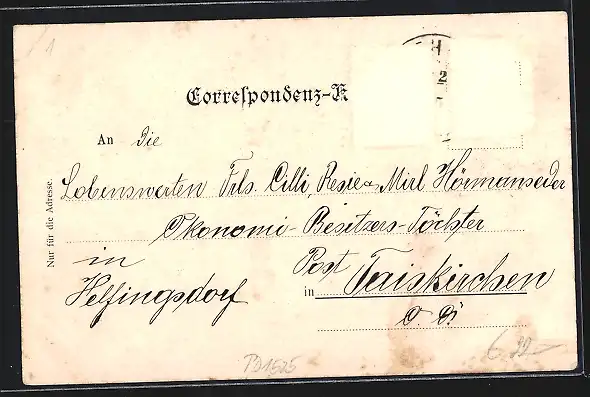 Correspondenz-K
An Die
Lobenswerten Frls. Cilli, Resie & Mirl Hörmanseder
Ökonomie-Besitzers-Töchter
in Post
Helfingsdorf in Taiskirchen
O Ö.
Nur für die Adresse.
2
1